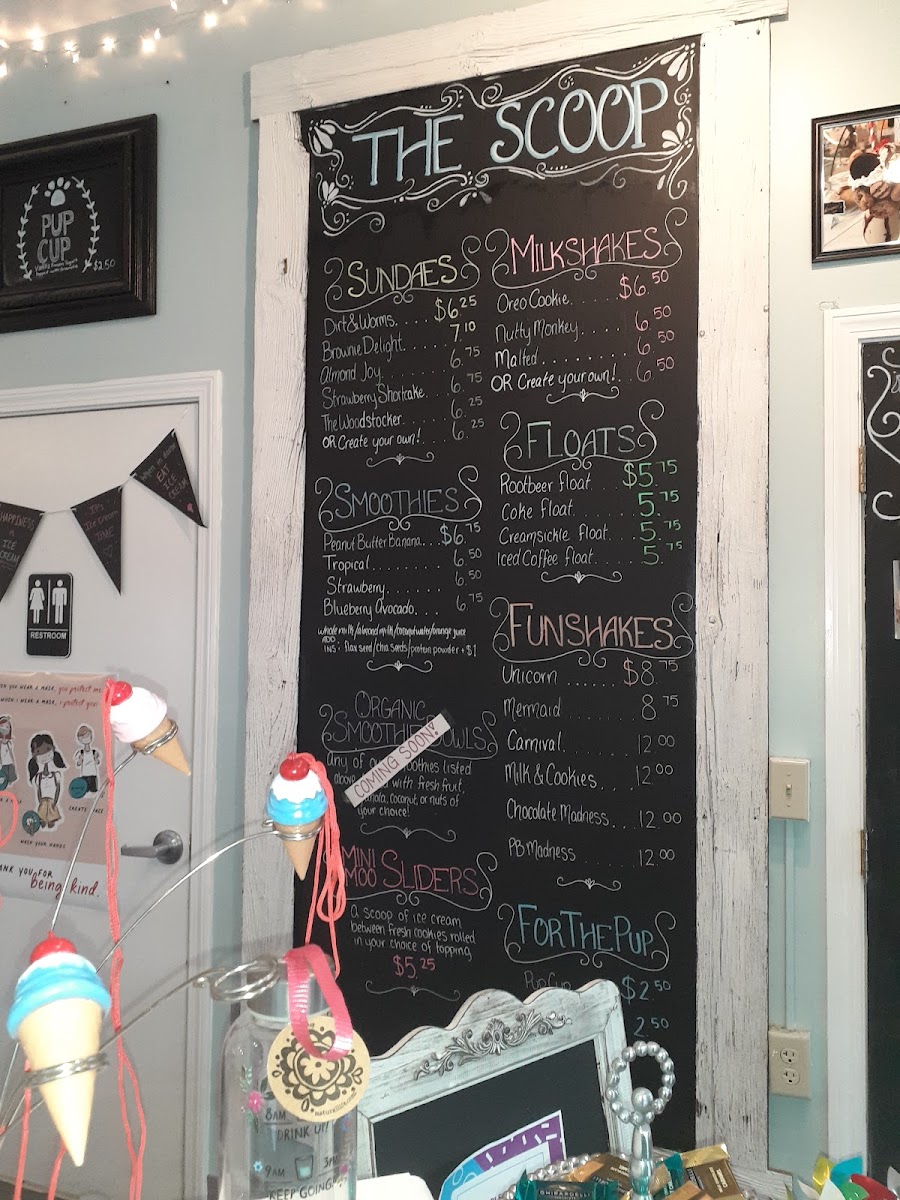 THE SCOOP
SUNDAES
Dirt & Worms..... $6.25
Brownie Delight. 7.10
Almond Joy. 6.75
Strawberry Shortcake 6.75
The Woodstocker. 6.25
OR Create your own!.. 6.25
SMOOTHIES
Peanut Butter Banana... $6.75
Tropical 6.50
Strawberry 6.50
Blueberry Avocado.... 6.75
whole milk/almond milk/coconut water/orange juice
ADD INS: flax seed/chia seeds/protein powder + $1
ORGANIC
SMOOTHIE BOWLS
COMING SOON!
any of our smoothies listed
above with fresh fruit,
coconut, or nuts of
your choice!
MINI MOO SLIDERS
a scoop of ice cream
between fresh cookies rolled
in your choice of topping
$5.25
MILKSHAKES
Oreo Cookie..... $6.50
Nutty Monkey...... 6.50
Malted......... 6.50
OR Create your own!... 6.50
FLOATS
Rootbeer float... $5.75
Coke float. 5.75
Creamsickle float.... 5.75
Iced Coffee float..... 5.75
FUNSHAKES
Unicorn ...... $8.75
Mermaid 8.75
Carnival. 12.00
Milk & Cookies.... 12.00
Chocolate Madness.... 12.00
PB Madness 12.00
FOR THE PUP
Pup Cup $2.50
2.50
PUP
CUP
$2.50
HAPPINESS
ICE
CREAM
IT'S
ICE CREAM
TIME
EAT
ICE
CREAM
RESTROOM
WHEN YOU WEAR A MASK, you protect me.
WHEN I WEAR A MASK, I protect you.
WASH YOUR HANDS
THANK YOU FOR
being kind.
naturallife.com
8AM
DRINK UP!
9AM
KEEP GOING!
GHIRARDELLI